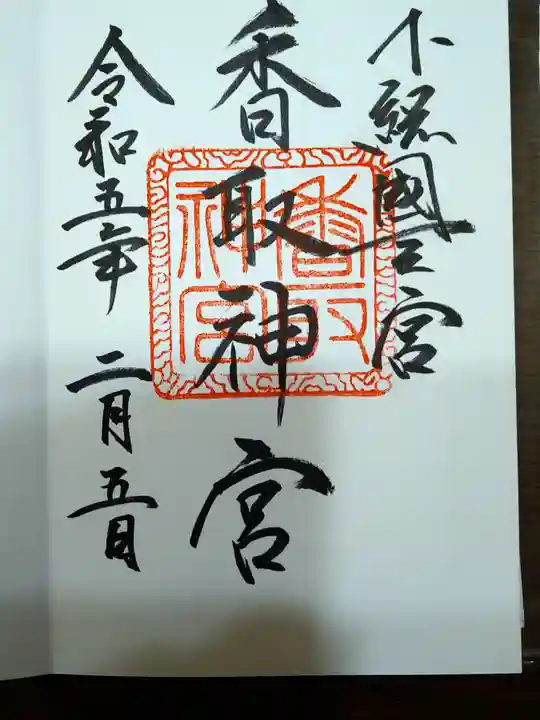 下総國一宮
香取神宮
香取神宮
令和五年 二月五日